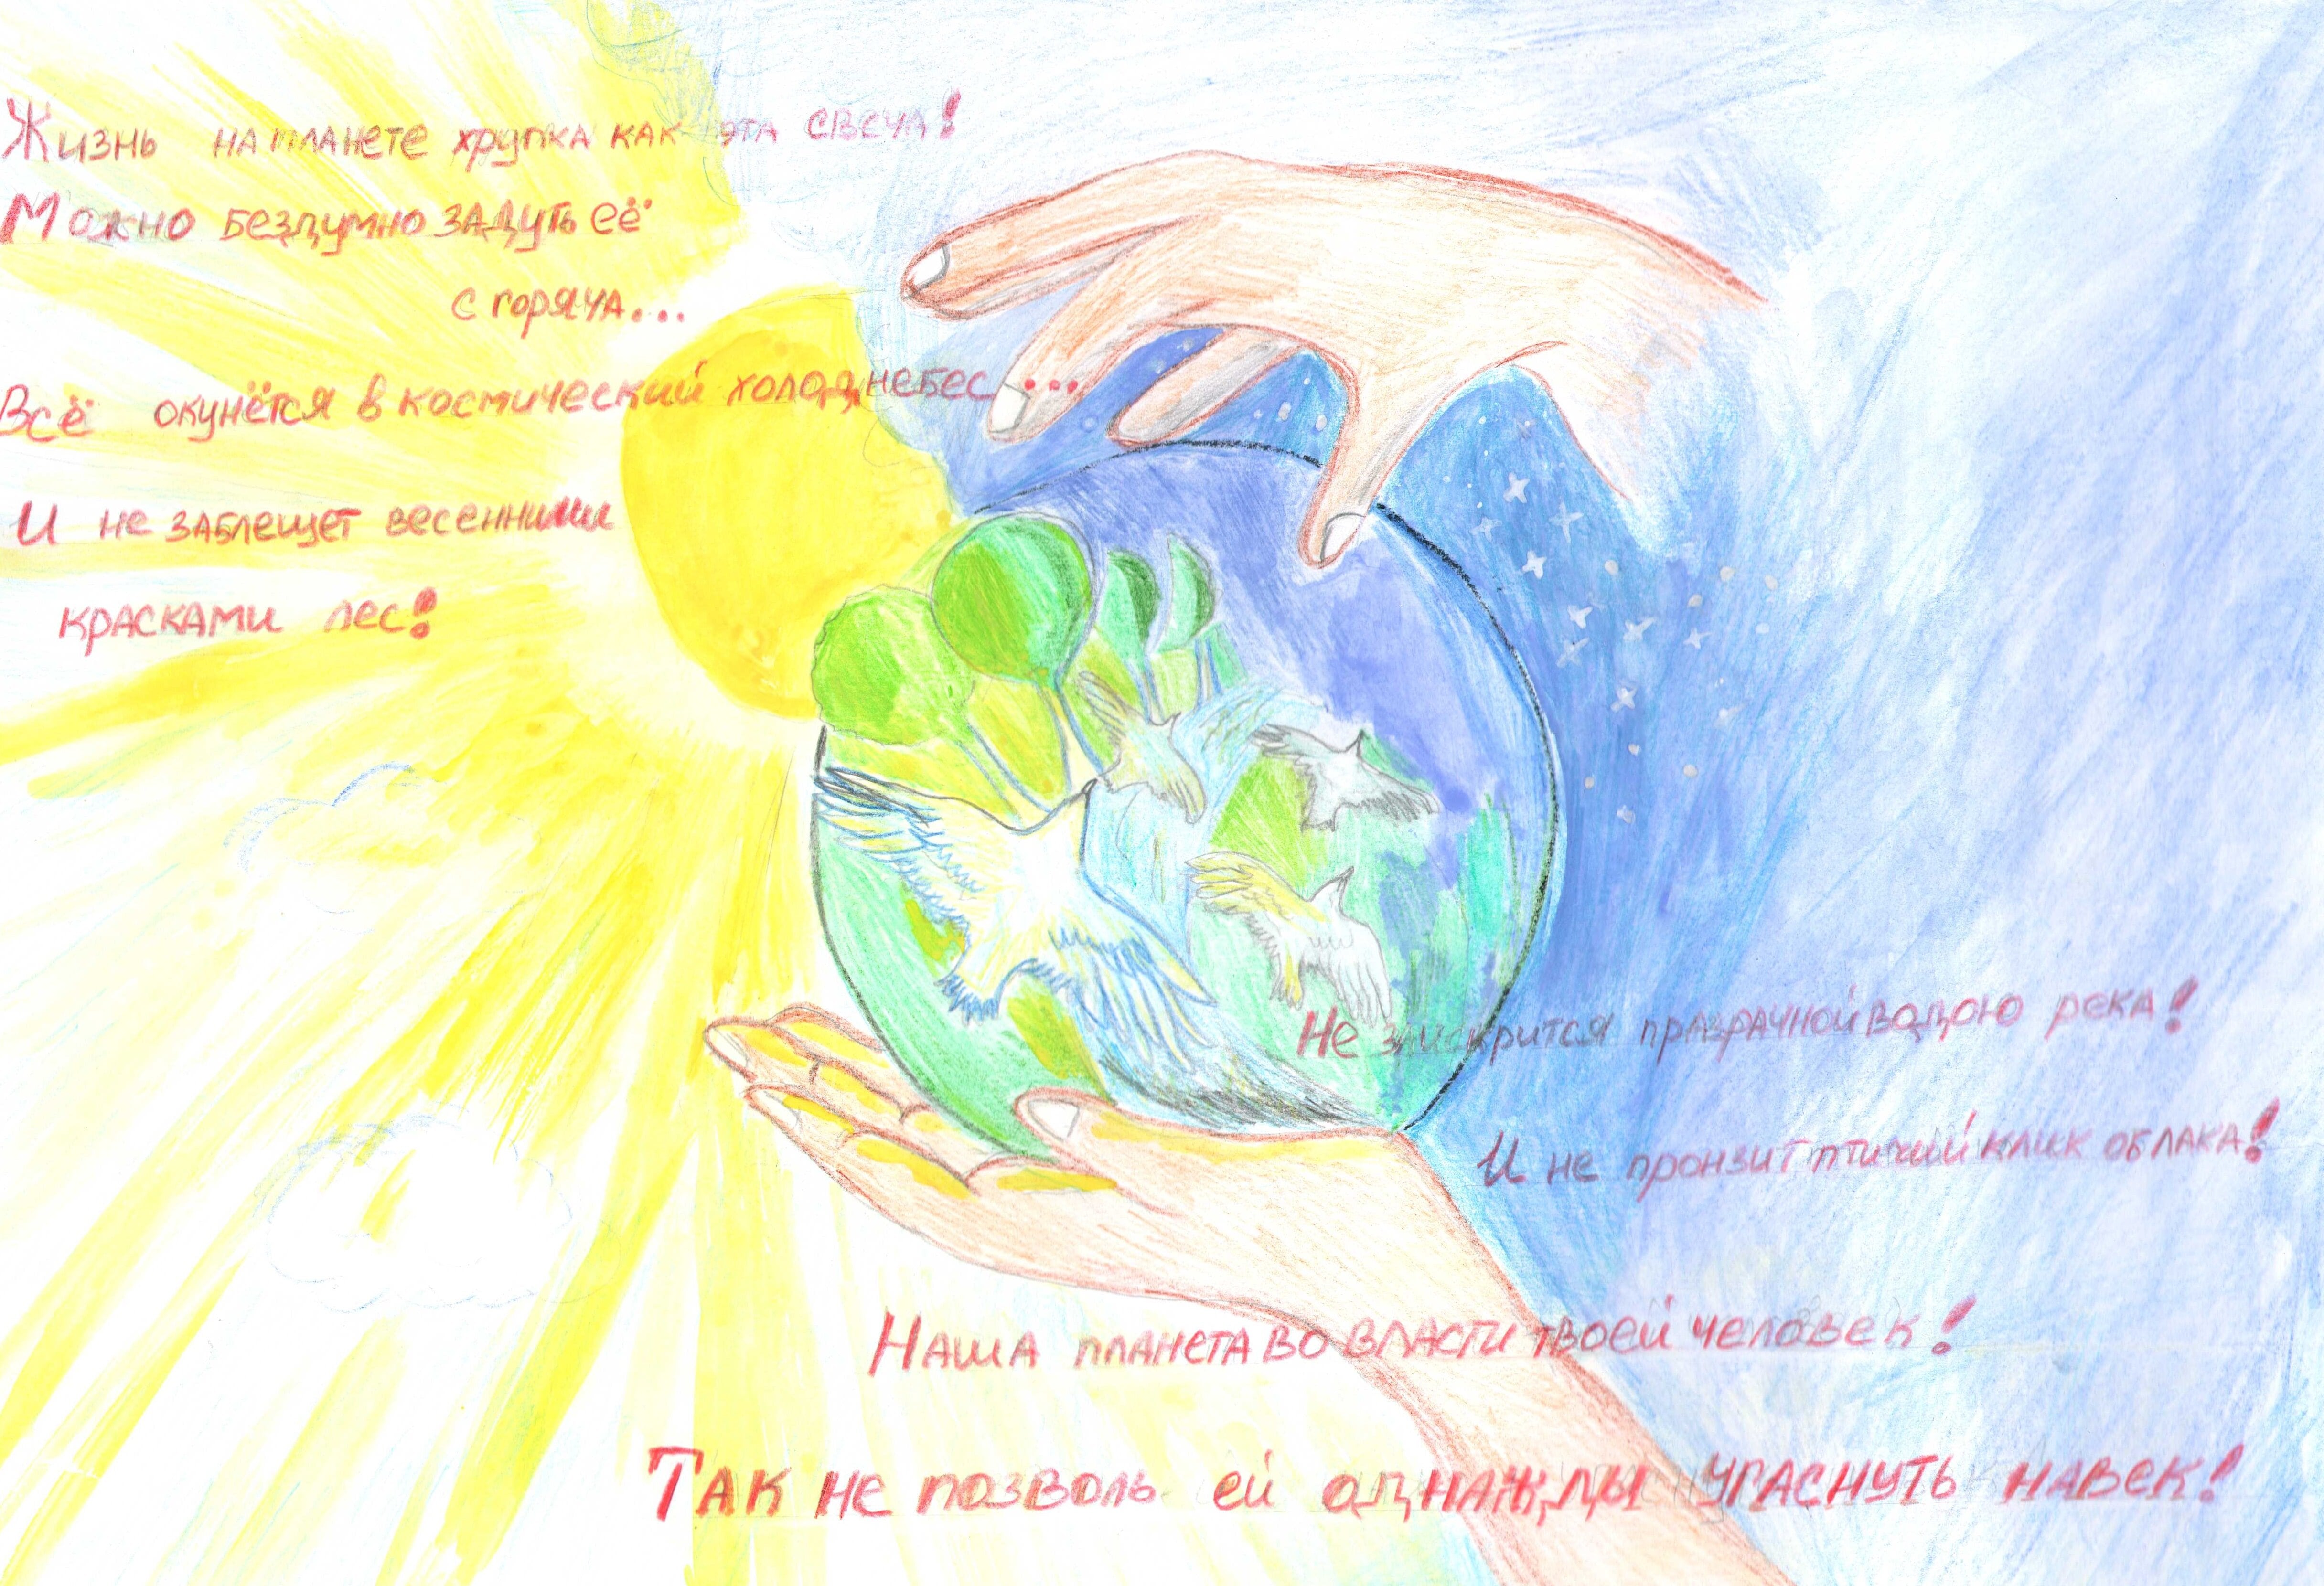 Жизнь на планете хрупка как эта свеча!
Можно бездумно задуть её
с горяча...
Всё окунётся в космический холод небес...
И не заблещет весенними
красками лес!
Не заискрится празрачной водою река!
И не пронзит птичий клик облака!
Наша планета во власти твоей человек!
Так не позволь ей однажды угаснуть навек!